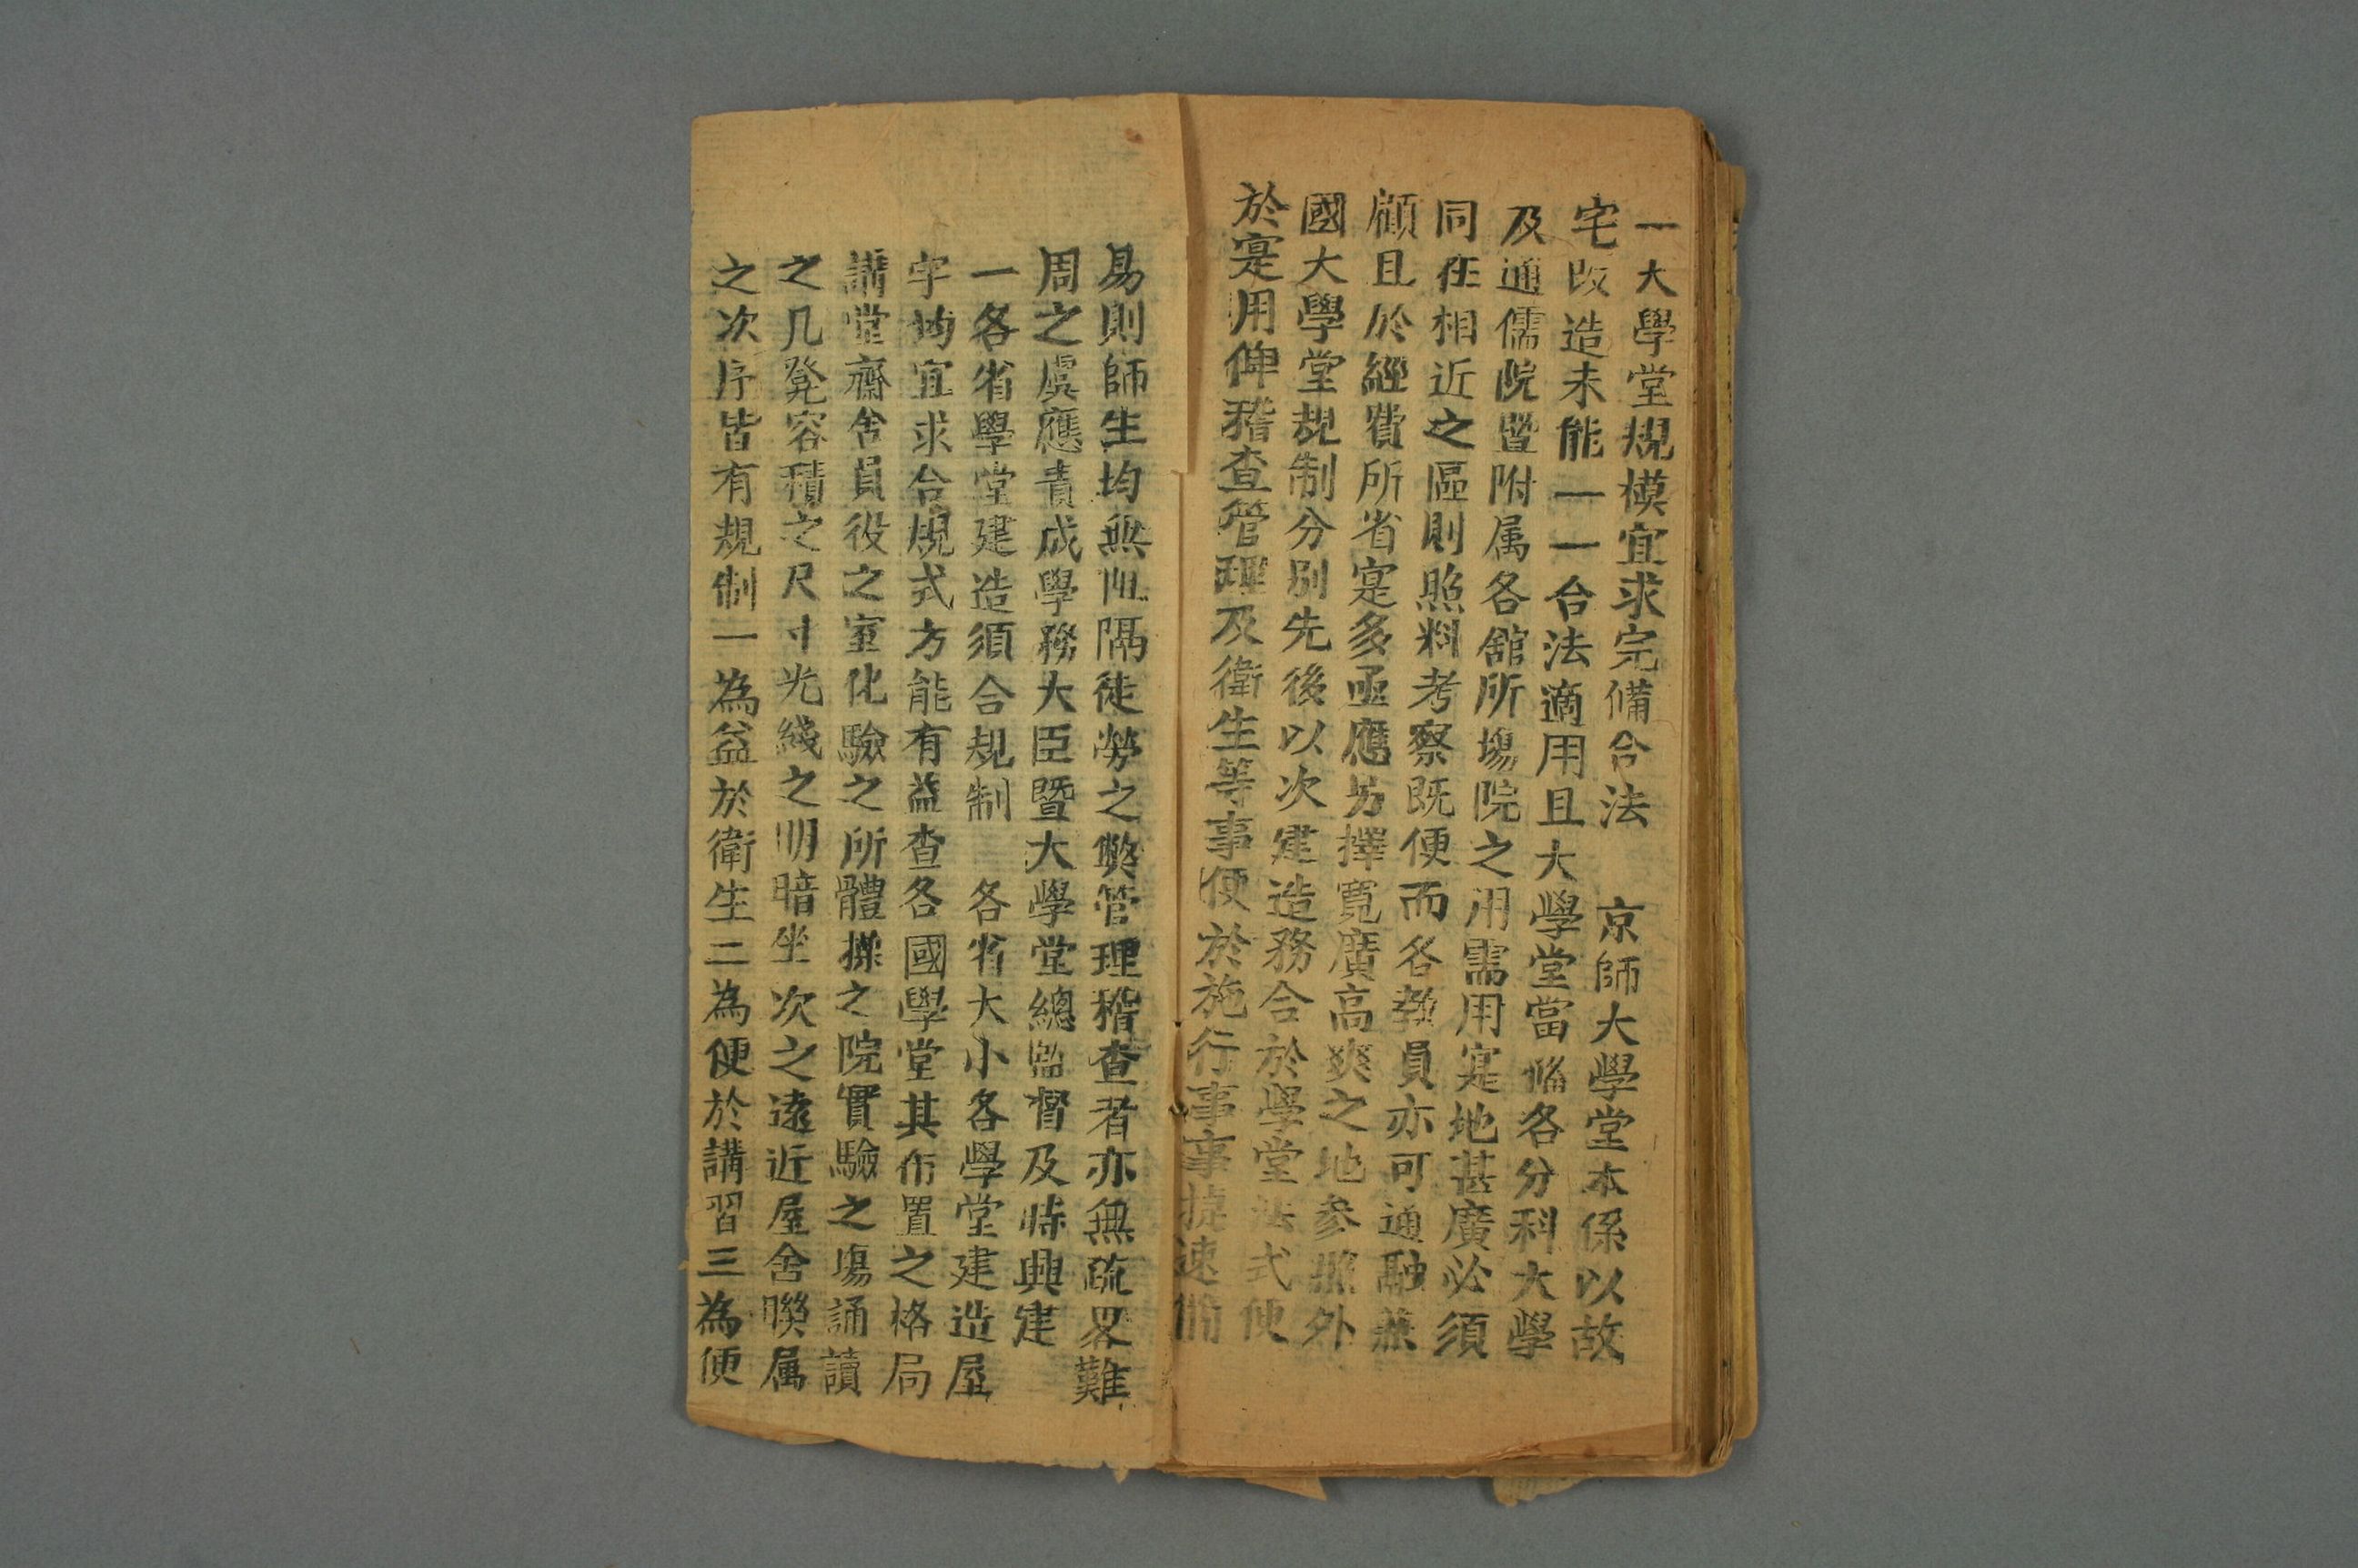 一大學堂規模宜求完備合法　京師大學堂本係以故
宅改造未能一一合法適用且大學堂當俻各分科大學
及通儒院暨附属各舘所塲院之用需用寔地甚廣必須
同在相近之區則照料考察既便而各教員亦可通融兼
顧且於經費所省寔多亟應另擇寬廣高爽之地参照外
國大學堂規制分别先後以次建造務合於學堂法式使
於寔用俾稽查管理及衛生等事便於施行事事捷速簡
易則師生均無阻隔徒勞之獘管理稽查者亦無疏畧難
周之虞應責成學務大臣暨大學堂總監督及時興建
一各省學堂建造須合規制　各省大小各學堂建造屋
宇均宜求合規式方能有益查各國學堂其佈置之格局
講堂齋舍員役之室化驗之所體操之院實驗之塲誦讀
之几凳容積之尺寸光綫之明暗坐次之遠近屋舍聨属
之次序皆有規制一為益於衛生二為便於講習三為便